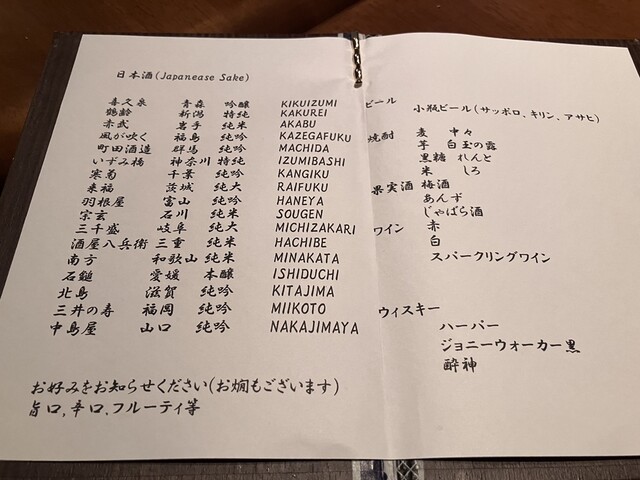 日本酒(Japanease Sake)
喜久泉 青森 吟醸 KIKUIZUMI
鶴齢 新潟 特純 KAKUREI
赤武 岩手 純米 AKABU
風が吹く 福島 純吟 KAZEGAFUKU
町田酒造 群馬 純吟 MACHIDA
いずみ橋 神奈川 特純 IZUMIBASHI
寒菊 千葉 純吟 KANGIKU
来福 茨城 純大 RAIFUKU
羽根屋 富山 純吟 HANEYA
宗玄 石川 純米 SOUGEN
三千盛 岐阜 純大 MICHIZAKARI
酒屋八兵衛 三重 純米 HACHIBE
南方 和歌山 純米 MINAKATA
石鎚 愛媛 本醸 ISHIDUCHI
北島 滋賀 純吟 KITAJIMA
三井の寿 福岡 純吟 MIIKOTO
中島屋 山口 純吟 NAKAJIMAYA
お好みをお知らせください(お燗もございます)
旨口,辛口,フルーティ等
ビール 小瓶ビール(サッポロ、キリン、アサヒ)
焼酎 麦 中々
芋 白玉の露
黒糖 れんと
米 しろ
果実酒 梅酒
あんず
じゃばら酒
ワイン 赤
白
スパークリングワイン
ウィスキー
ハーパー
ジョニーウォーカー黒
酔神